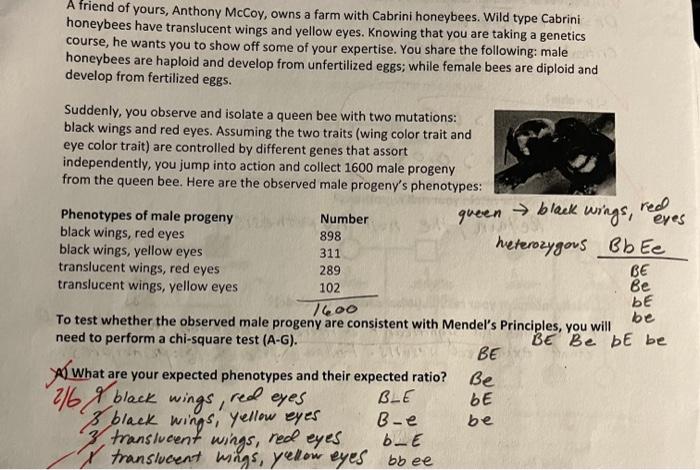 A friend of yours, Anthony McCoy, owns a farm with Cabrini honeybees. Wild type Cabrini
honeybees have translucent wings and yellow eyes. Knowing that you are taking a genetics
course, he wants you to show off some of your expertise. You share the following: male
honeybees are haploid and develop from unfertilized eggs; while female bees are diploid and
develop from fertilized eggs.
Suddenly, you observe and isolate a queen bee with two mutations:
black wings and red eyes. Assuming the two traits (wing color trait and
eye color trait) are controlled by different genes that assort
independently, you jump into action and collect 1600 male progeny
from the queen bee. Here are the observed male progeny's phenotypes:
queen → black wings, red eyes
Phenotypes of male progeny Number
black wings, red eyes 898
heterozygous BbEe
black wings, yellow eyes 311
translucent wings, red eyes 289
translucent wings, yellow eyes 102
BE
Be
bE
be
1600
To test whether the observed male progeny are consistent with Mendel's Principles, you will
need to perform a chi-square test (A-G).
BE Be bE be
BE
Be
bE
be
A) What are your expected phenotypes and their expected ratio?
2/6 9 black wings, red eyes B-E
3 black wings, yellow eyes B-e
3 translucent wings, red eyes b-E
1 translucent wings, yellow eyes bb ee